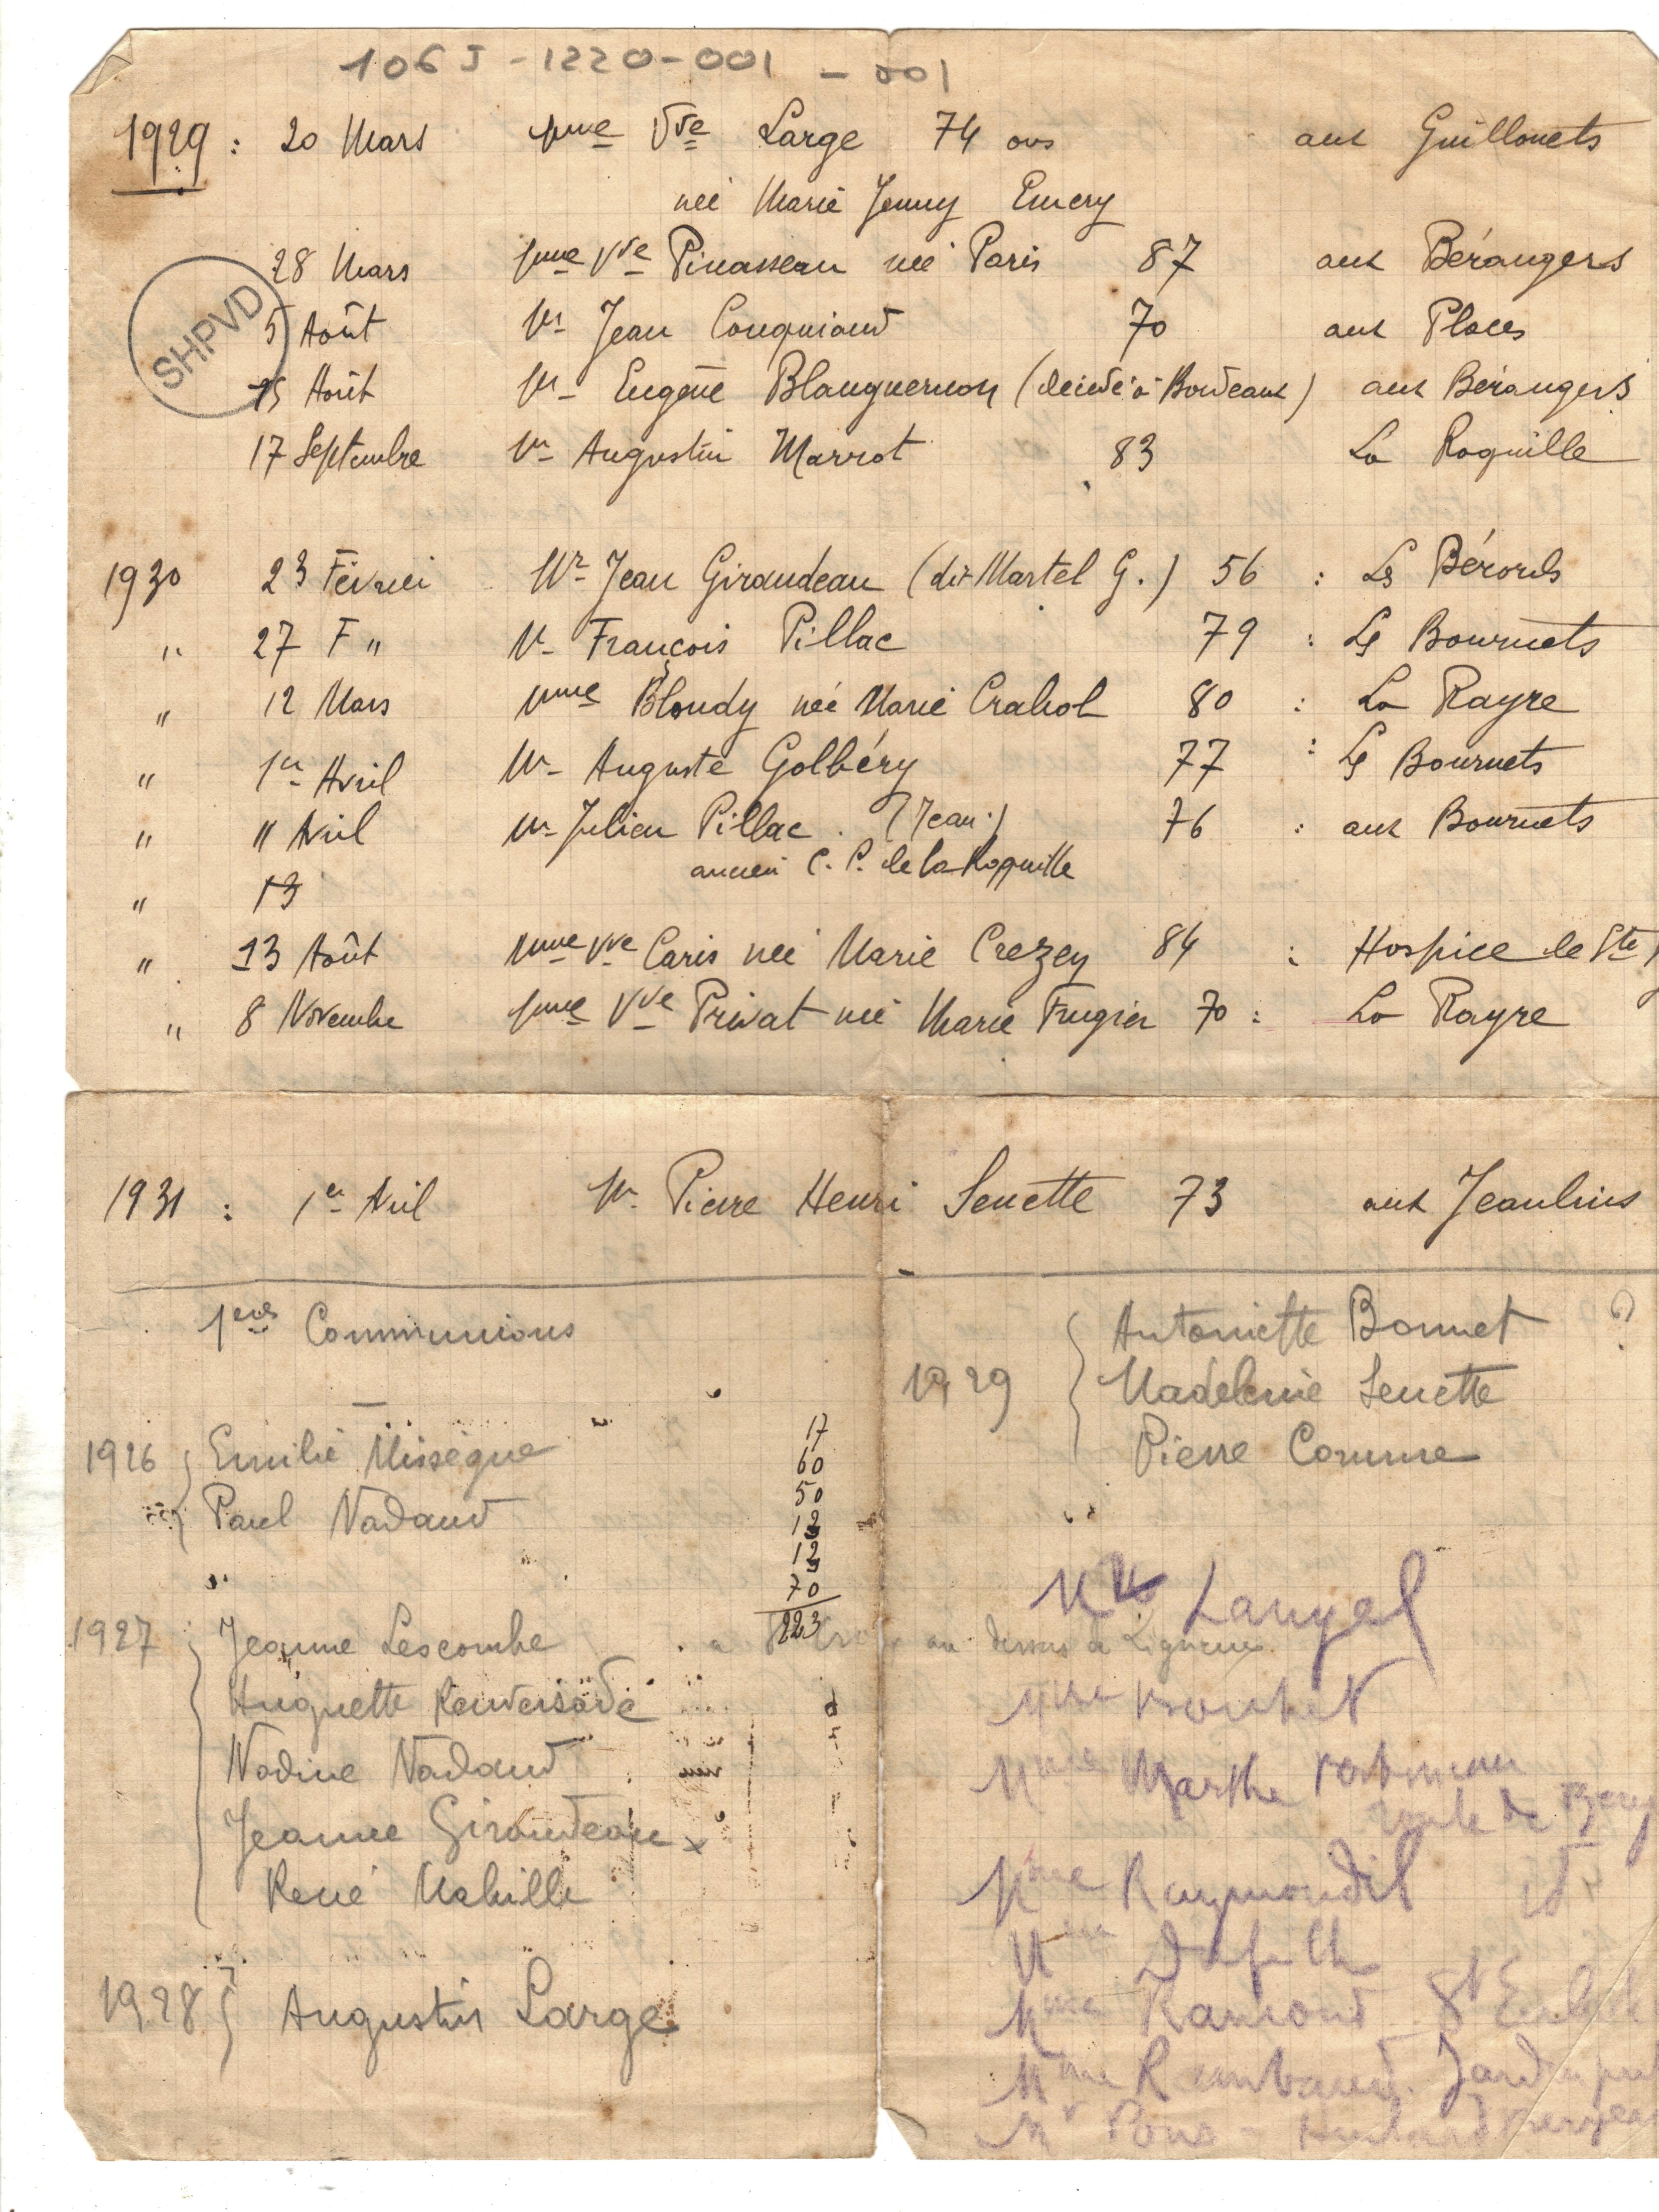 106 J - 1220 - 001 - 001
1929 : 20 Mars Mme Vve Large 74 ans aux Guillonets
née Marie Jenny Emery
28 Mars Mme Vve Pinasseau née Paris 87 aux Bérangers
SHPVD
5 Août Mr Jean Conquiaud 70 aux Places
15 Août Mr Eugène Blanguernon (décédé à Bordeaux) aux Bérangers
17 Septembre Mr Augustin Marrot 83 La Roquille
1930 23 Février Mr Jean Giraudeau (dit Martel G.) 56 : Les Bérards
" 27 F " Mr François Pillac 79 : Les Bournets
" 12 Mars Mme Bloudy née Marie Crabol 80 : La Rayre
" 1er Avril Mr Auguste Golbéry 77 : Les Bournets
" " Avril Mr Julien Pillac. (Jean.) 76 : aux Bournets
ancien C. P. de la Roquille
" 13
" 13 Août Mme Vve Caris née Marie Crezey 84 : Hospice de Ste
" 8 Novembre Mme Vve Privat née Marie Frugier 70 : La Rayre
1931 : 1er Avril Mr Pierre Henri Senette 73 aux Jeaulins
1eres Communions
1926 { Emilie Missègue
Paul Nadaud
1927 { Jeanne Lescombe
Huguette Renversade
Nadine Nadaud
Jeanne Giraudeau x
René Mabille
1928 } Augustin Large
17
60
50
12
12
70
223
1929 { Antoinette Bonnet ?
Madeleine Senette
Pierre Comme
au dessus de Ligueux
Mlle Langel
Mme Bouchet
Mme Marthe
route de
Mme Raymondil id
Mme
Mme Ramond St
Mme Rambaud. Jardin
Mr Pons -